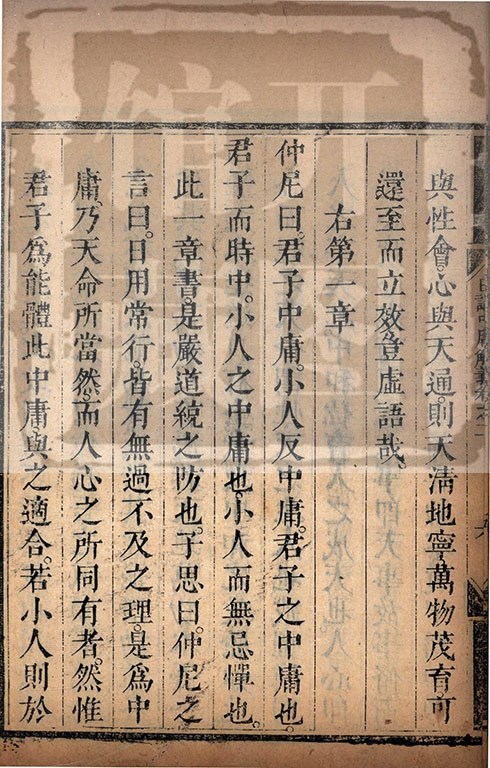 與性會。心與天通。則天淸地寧。萬物茂育。可
還至而立效。豈虛語哉。
右第一章
仲尼曰。君子中庸。小人反中庸。君子之中庸也。
君子而時中。小人之中庸也。小人而無忌憚也。
此一章書。是嚴道統之防也。子思曰。仲尼之
言曰。日用常行。皆有無過不及之理。是爲中
庸。乃天命所當然。而人心之所同有者。然惟
君子爲能體此中庸。與之適合。若小人則於